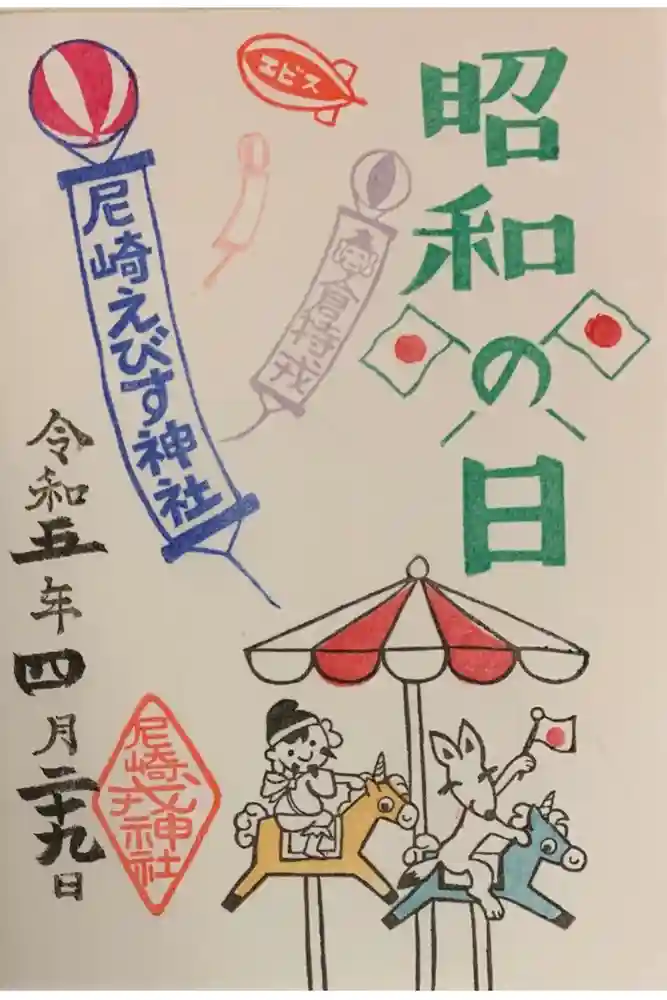 昭和の日
ヱビス
尼崎えびす神社
令和五年四月二十九日
尼崎戎神社